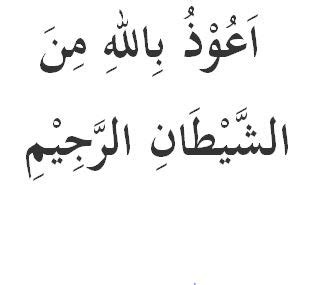 اَعُوْذُ بِاللّٰهِ مِنَ
الشَّيْطَانِ الرَّجِيْمِ